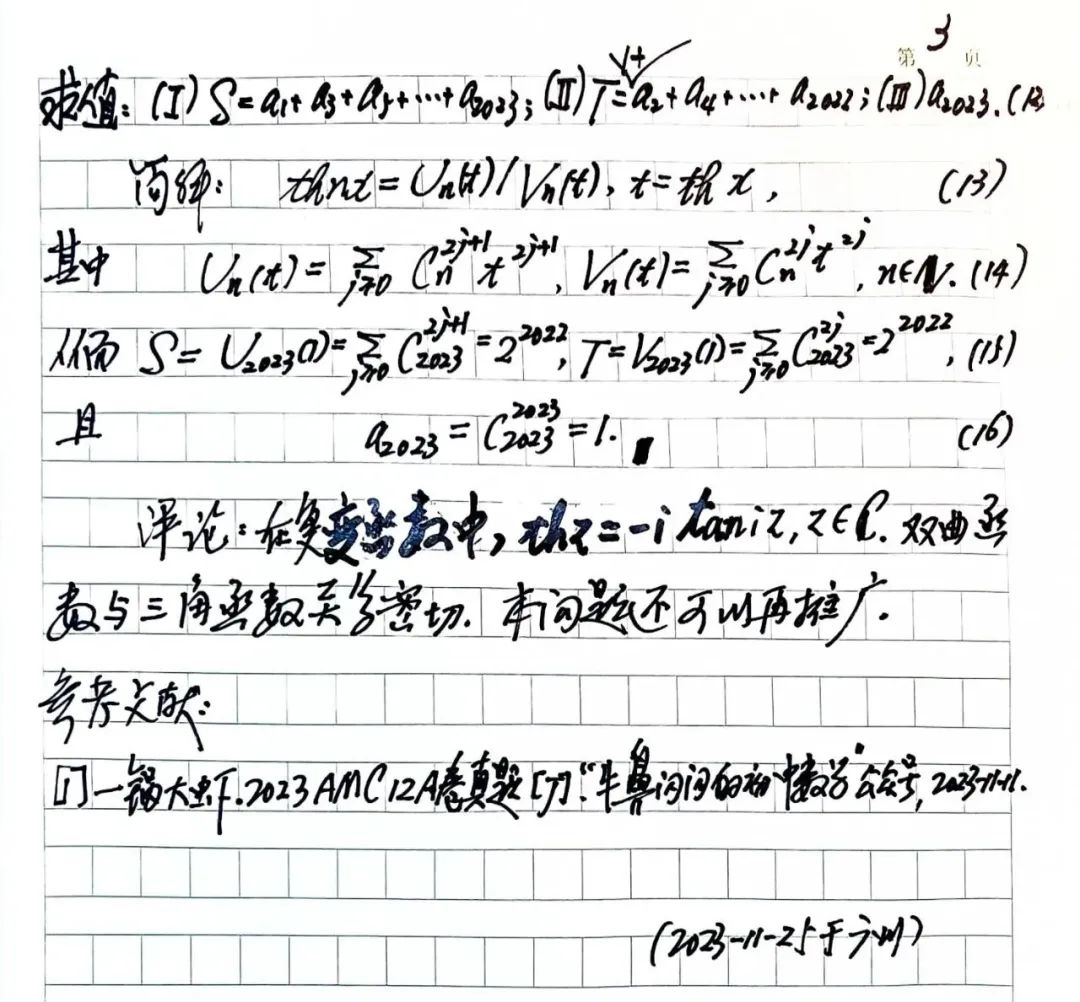 第 3 页
求值: (I) S = a₁ + a₃ + a₅ + ⋯ + a₂₀₂₃; (II) T = 1 + a₂ + a₄ + ⋯ + a₂₀₂₂; (III) a₂₀₂₃. (12)
简解: th nx = Uₙ(t) / Vₙ(t), t = th x, (13)
其中 Uₙ(t) = Σ_{j≥0} Cₙ^{2j+1} t^{2j+1}, Vₙ(t) = Σ_{j≥0} Cₙ^{2j} t^{2j}, n∈N. (14)
从而 S = U₂₀₂₃(1) = Σ_{j≥0} C₂₀₂₃^{2j+1} = 2^{2022}, T = V₂₀₂₃(1) = Σ_{j≥0} C₂₀₂₃^{2j} = 2^{2022}, (15)
且 a₂₀₂₃ = C₂₀₂₃^{2023} = 1. (16)
评论: 在复变函数中, thz = -i tan iz, z∈C. 双曲函
数与三角函数关系密切. 本问题还可以再推广.
参考文献:
[1] 一锅大虾. 2023 AMC 12A卷真题 [J]. "牛鼻问问的初中数学"公众号, 2023-11-11.
(2023-11-25于广州)